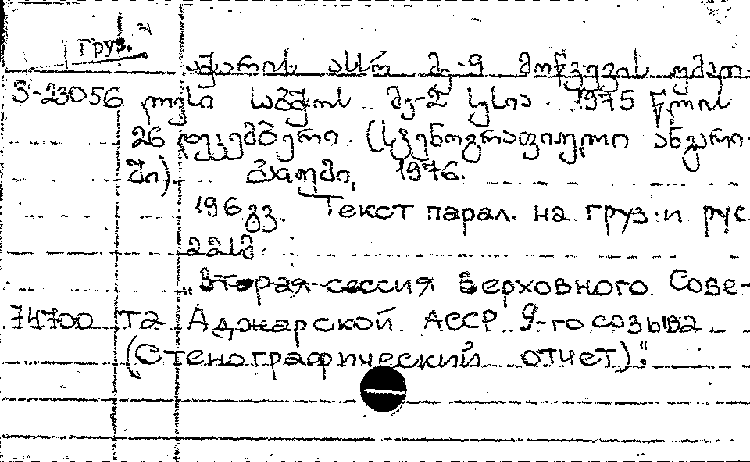 груз.
აჭარის ასსრ მე-9 მოწვევის უმაღ-
3-23056 ლესი საბჭოს მე-2 სესია. 1975 წლის
26 დეკემბერი. (სტენოგრაფიული ანგარი-
ში). ბათუმი, 1976.
196 გვ. Текст парал. на груз. и рус
22 სმ.
„Вторая сессия Верховного Сове-
74700 та Аджарской АССР 9-го созыва
(Стенографический отчет)".